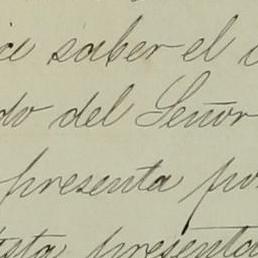 saber el
do del Señor
presenta por
ista presenta